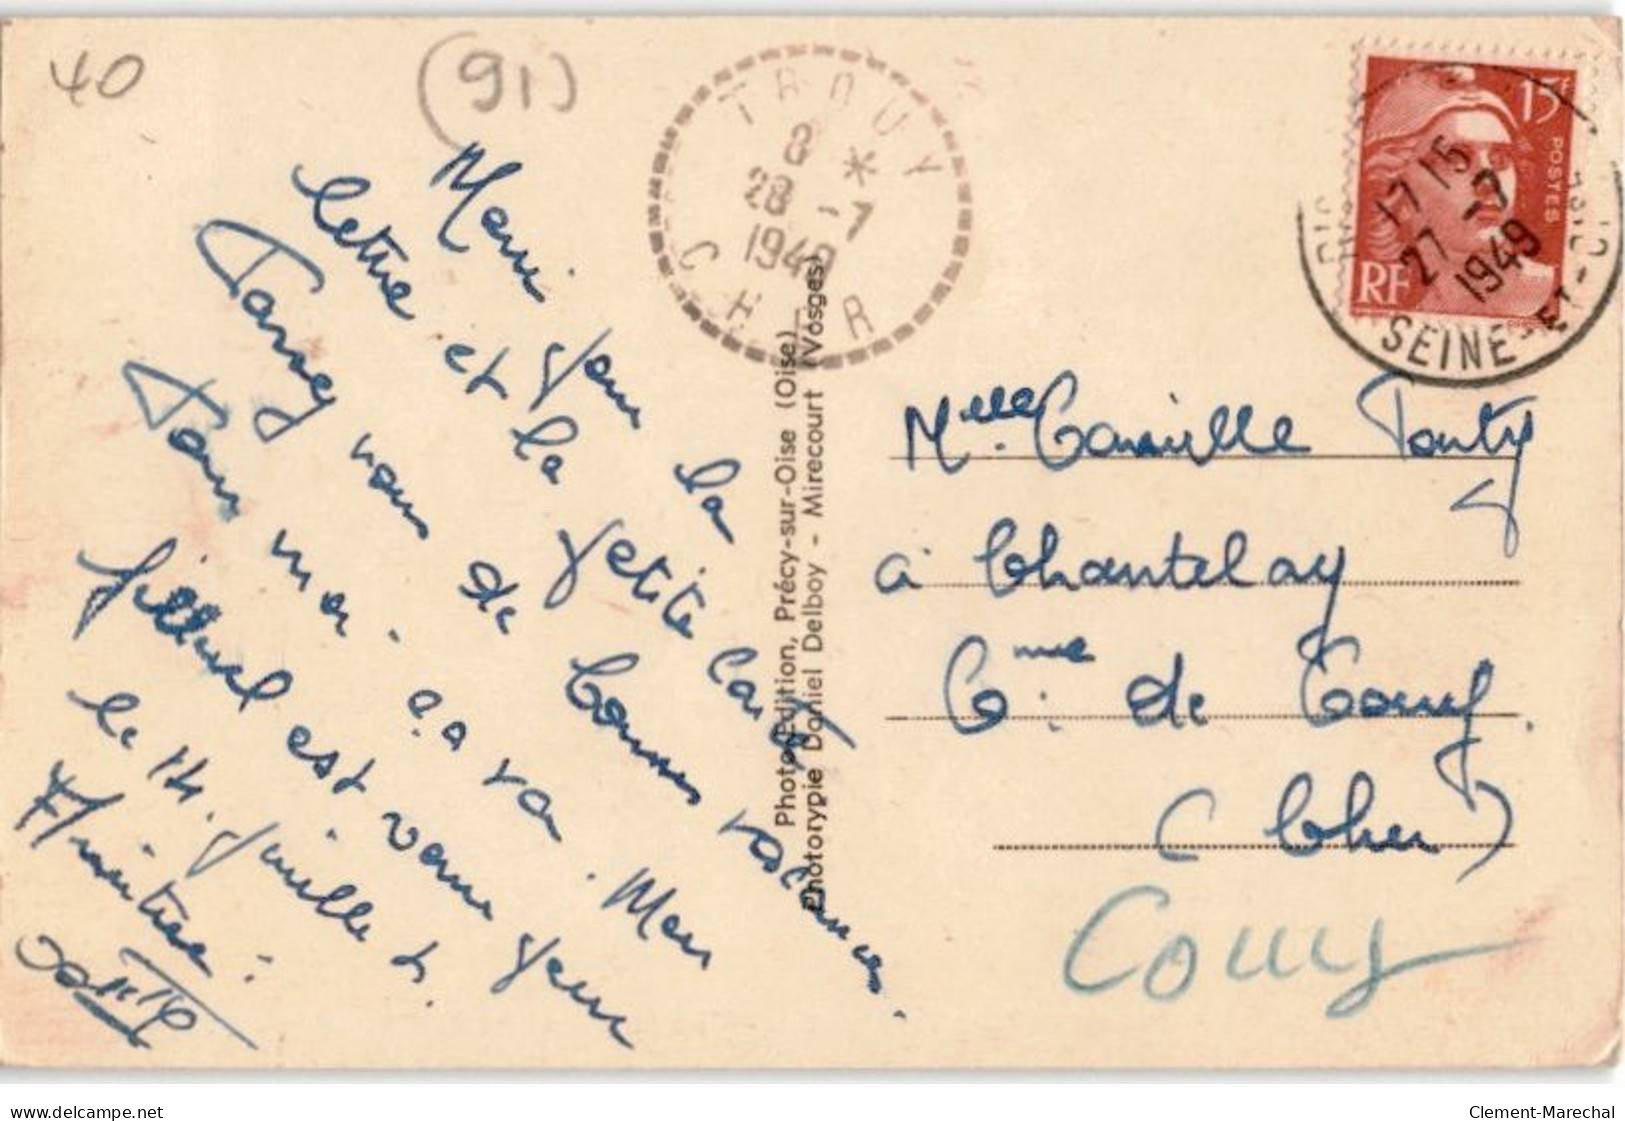 40
(91)
TROUY
8 *
28 -7
1949
CHER
15F
POSTES
RF
17 15
27 -7
1949
SEINE-ET-OISE
Merci pour la
lettre et la petite carte
Passez vous de bonnes vacances.
Pour moi ça va. Mon
filleul est venu pour
le 14 juillet
Amitiés
Photo-Edition, Précy-sur-Oise (Oise)
Photorypie Daniel Delboy - Mirecourt (Vosges)
Melle Camille Ponty
à Chantelay
Cme de Trouy.
(Cher)
Trouy
delcampe.net
Clement-Marechal